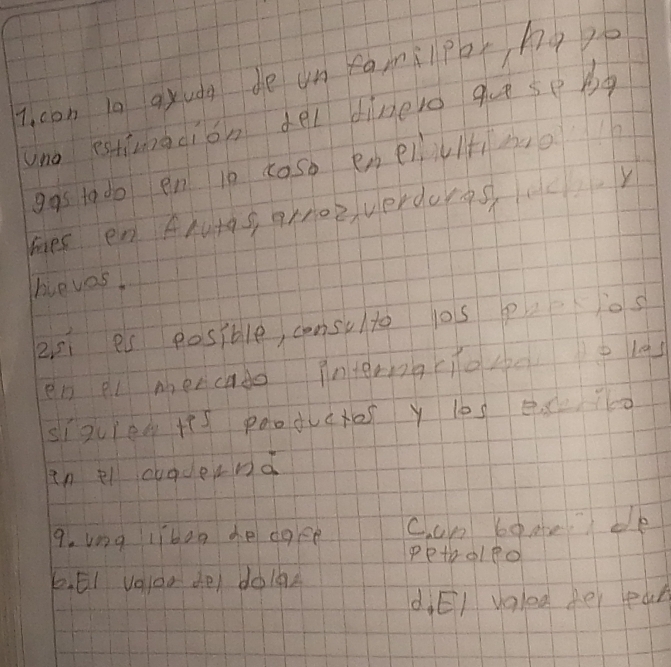 1. con la ayuda de un familiar, hago
una estimación del dinero que se ha
gastado en la casa en el ultimo
mes en frutas, arroz, verduras, y
huevos.
2. si es posible, consulto los
en el mercado internacional los
siguientes productos y los escribo
en el cuaderno
a. una libra de cafe
b. El valor del dolar
c. un barril de
petroleo
d. El valor del eur